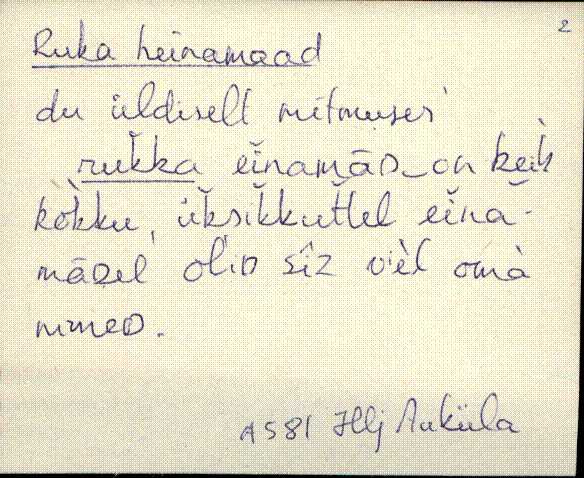 2
Ruka heinamaad
du üldiselt mitmuses
ruk̆ka ĕinamāᴅ_on keik
kòkku, ük̆sikkut̆tel ĕinà-
māᴅel ol'iᴅ sîz vièl omà
nimeᴅ.
AS81 Hlj Auküla